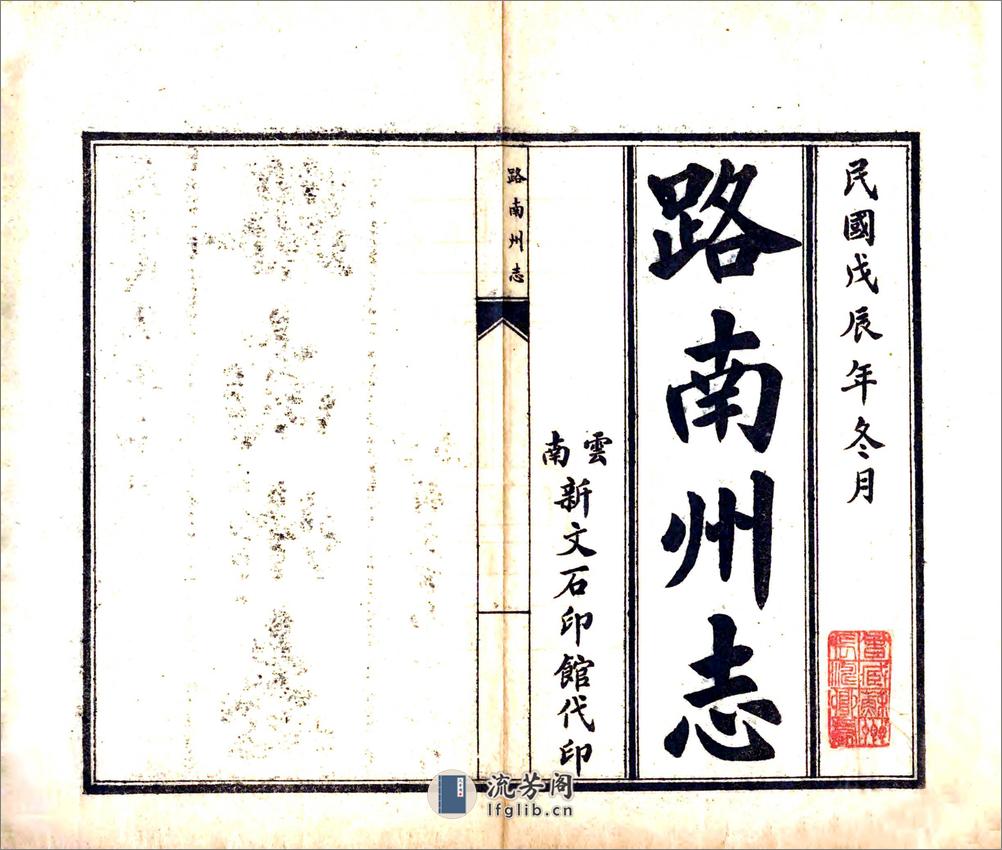 民國戊辰年冬月
路南州志
雲南新文石印館代印
路南州志
流芳阁
lfglib.cn